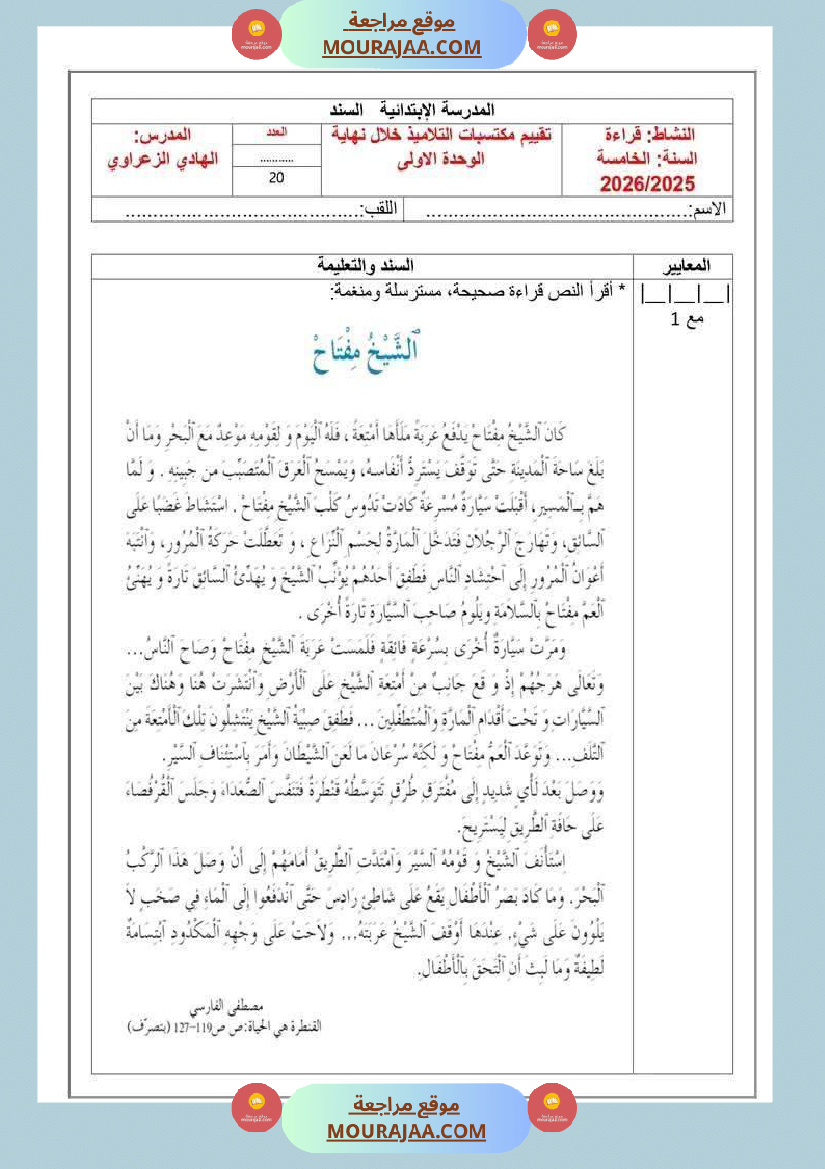 موقع مراجعة
MOURAJAA.COM
المدرسة الإبتدائية السند
النشاط: قراءة
السنة: الخامسة
2026/2025
تقييم مكتسبات التلاميذ خلال نهاية
الوحدة الاولى
العدد
...........
20
المدرس:
الهادي الزعراوي
الاسم:................................................
اللقب:...........................................
المعايير
السند والتعليمة
|__|__|__|
مع 1
* أقرأ النص قراءة صحيحة، مسترسلة ومنغمة:
اَلشَّيْخُ مِفْتَاحْ
كَانَ اَلشَّيْخُ مِفْتَاحْ يَدْفَعُ عَرَبَةً مَلَأَهَا أَمْتِعَةً ، فَلَهُ اَلْيَوْمَ وَ لِقَوْمِهِ مَوْعِدٌ مَعَ اَلْبَحْرِ وَمَا أَنْ
بَلَغَ سَاحَةَ اَلْمَدِينَةِ حَتَّى تَوَقَّفَ يَسْتَرِدُّ أَنْفَاسَهُ، وَيَمْسَحُ اَلْعَرَقَ اَلْمُتَصَبِّبَ مِن جَبِينِهِ . وَ لَمَّا
هَمَّ بِـاَلْمَسِيرِ، أَقْبَلَتْ سَيَّارَةٌ مُسْرِعَةٌ كَادَتْ تَدُوسُ كَلْبَ اَلشَّيْخِ مِفْتَاحْ . اسْتَشَاطَ غَضَبًا عَلَى
اَلسَّائِقِ، وَتَهَارَجَ اَلرَّجُلَانِ فَتَدَخَّلَ اَلْمَارَّةُ لِحَسْمِ اَلنِّزَاعِ ، وَ تَعَطَّلَتْ حَرَكَةُ اَلْمُرُورِ، وَاَنْتَبَهَ
أَعْوَانُ اَلْمُرُورِ إِلَى اَحْتِشَادِ اَلنَّاسِ فَطَفِقَ أَحَدُهُمْ يُؤَنِّبُ اَلشَّيْخَ وَ يُهَدِّئُ اَلسَّائِقَ تَارَةً وَ يُهَنِّئُ
اَلْعَمَّ مِفْتَاحْ بِاَلسَّلَامَةِ وَيَلُومُ صَاحِبَ اَلسَّيَّارَةِ تَارَةً أُخْرَى .
وَمَرَّتْ سَيَّارَةٌ أُخْرَى بِسُرْعَةٍ فَائِقَةٍ فَلَمَسَتْ عَرَبَةَ اَلشَّيْخِ مِفْتَاحْ وَصَاحَ اَلنَّاسُ...
وَتَعَالَى هَرَجُهُمْ إِذْ وَ قَعَ جَانِبٌ مِنْ أَمْتِعَةِ اَلشَّيْخِ عَلَى اَلْأَرْضِ وَاَنْتَشَرَتْ هُنَا وَهُنَاكَ بَيْنَ
اَلسَّيَّارَاتِ وَ تَحْتَ أَقْدَامِ اَلْمَارَّةِ وَاَلْمُتَطَفِّلِينَ... فَطَفِقَ صِبْيَةُ اَلشَّيْخِ يَنْتَشِلُونَ تِلْكَ اَلْأَمْتِعَةَ مِنَ
اَلتَّلَفِ... وَتَوَعَّدَ اَلْعَمُّ مِفْتَاحْ وَ لَكِنَّهُ سُرْعَانَ مَا لَعَنَ اَلشَّيْطَانَ وَأَمَرَ بِاَسْتِئْنَافِ اَلسَّيْرِ.
وَوَصَلَ بَعْدَ لَأْيٍ شَدِيدٍ إِلَى مُفْتَرَقِ طُرُقٍ تَتَوَسَّطُهُ قَنْطَرَةٌ فَتَنَفَّسَ اَلصُّعَدَاءَ وَجَلَسَ اَلْقُرْفُصَاءَ
عَلَى حَافَةِ اَلطَّرِيقِ لِيَسْتَرِيحَ.
اِسْتَأْنَفَ اَلشَّيْخُ وَ قَوْمُهُ اَلسَّيْرَ وَاَمْتَدَّتِ اَلطَّرِيقُ أَمَامَهُمْ إِلَى أَنْ وَصَلَ هَذَا اَلرَّكْبُ
اَلْبَحْرَ. وَمَا كَادَ بَصَرُ اَلْأَطْفَالِ يَقَعُ عَلَى شَاطِئِ رَادِسَ حَتَّى اَنْدَفَعُوا إِلَى اَلْمَاءِ فِي صَخَبٍ لاَ
يَلْوُونَ عَلَى شَيْءٍ. عِنْدَهَا أَوْقَفَ اَلشَّيْخُ عَرَبَتَهُ... وَلاَحَتْ عَلَى وَجْهِهِ اَلْمَكْدُودِ اَبْتِسَامَةٌ
لَطِيفَةٌ وَمَا لَبِثَ أَنِ اَلْتَحَقَ بِاَلْأَطْفَالِ.
مصطفى الفارسي
القنطرة هي الحياة:ص ص119-127 (بتصرّف)
موقع مراجعة
MOURAJAA.COM